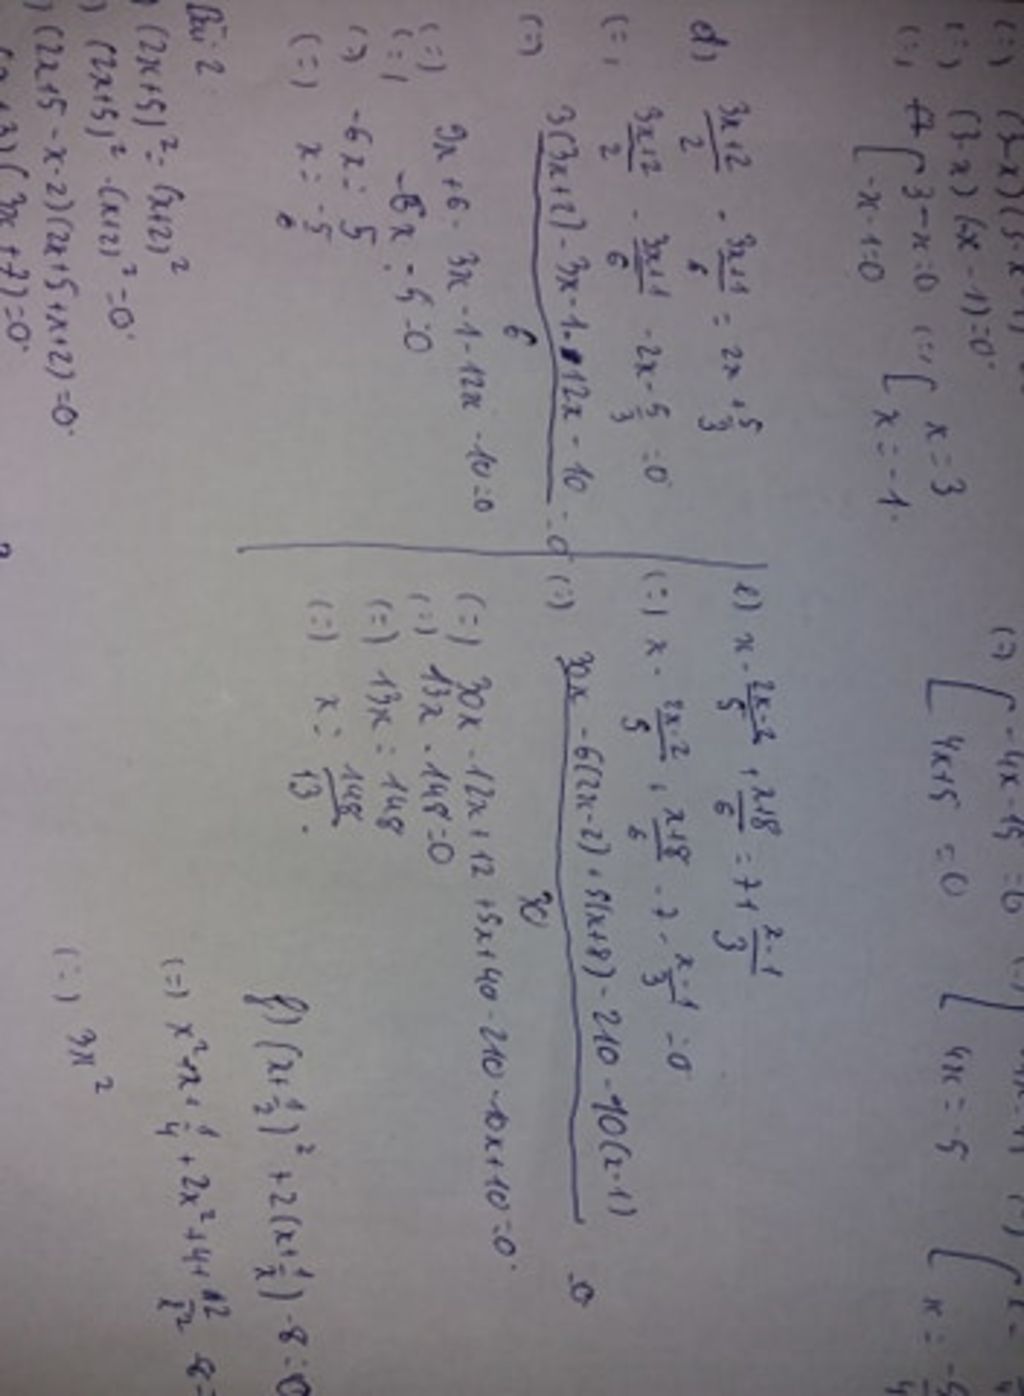 (3-x)(-x-1)=0
(=) [ 3-x=0 (=) [ x=3
[ -x-1=0 [ x=-1.
(=) [ -4x-15=0
[ 4x+5=0 [ 4x=-5
d) (3x+2)/2 - (3x+1)/6 = 2x + 5/3
(=) (3x+2)/2 - (3x+1)/6 - 2x - 5/3 = 0
(=) (3(3x+2) - 3x - 1 - 12x - 10)/6 = 0
(=) 9x+6-3x-1-12x-10=0
(=) -6x-5=0
(=) -6x=5
(=) x= -5/6
e) x - (2x-2)/5 + (x+8)/6 = 7 + (x-1)/3
(=) x - (2x-2)/5 + (x+8)/6 - 7 - (x-1)/3 = 0
(=) (30x - 6(2x-2) + 5(x+8) - 210 - 10(x-1))/30 = 0
(=) 30x-12x+12+5x+40-210-10x+10=0.
(=) 13x-148=0
(=) 13x=148
(=) x= 148/13.
f) (x+1/2)² + 2(x+1/x) - 8 = 0
(=) 3x²
Bài 2
(2x+5)² = (x+2)²
(2x+5)² - (x+2)² = 0.
(2x+5-x-2)(2x+5+x+2)=0.
(x+3)(3x+7)=0.